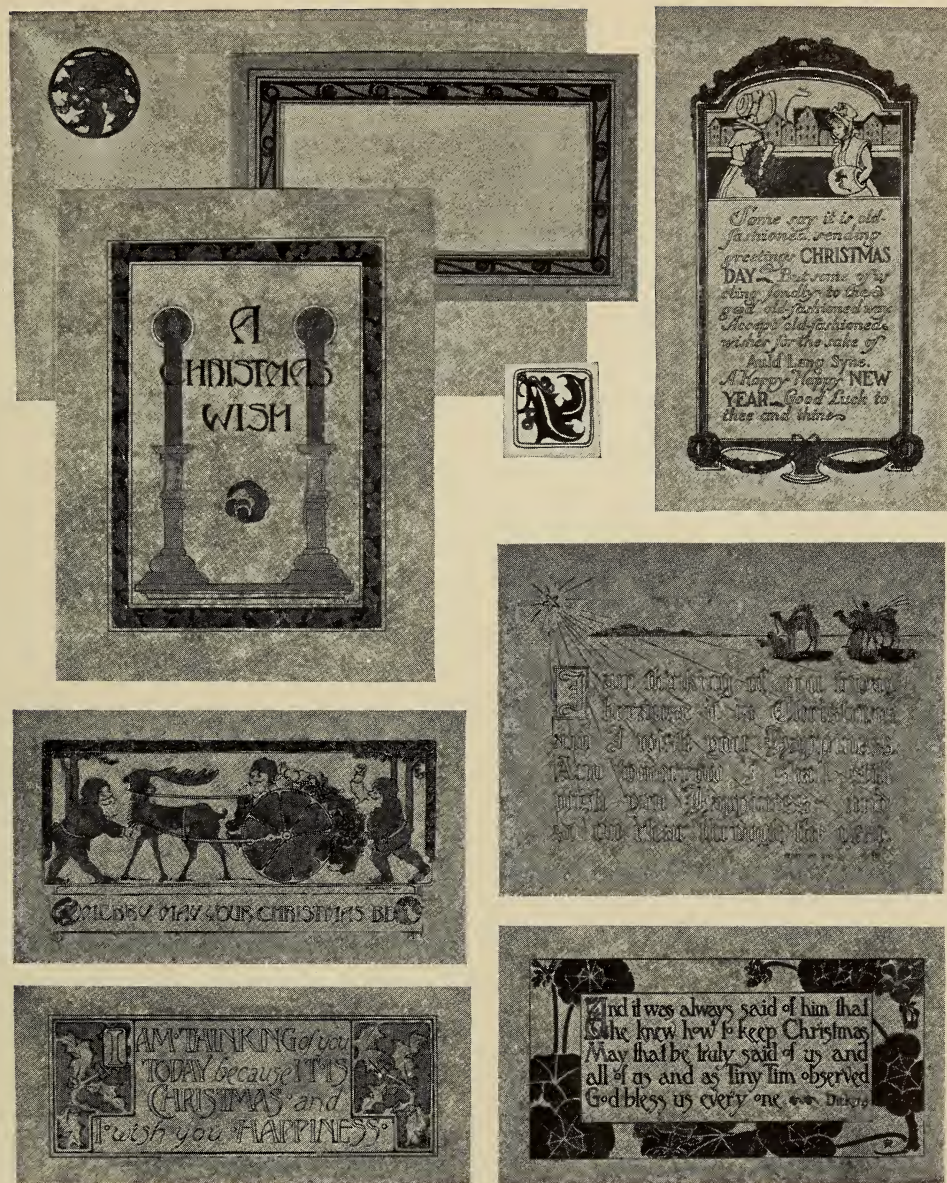 A
CHRISTMAS
WISH
Some say it is old-
fashioned, sending
greetings CHRISTMAS
DAY But some of us
cling fondly to the
good old-fashioned way
Accept old-fashioned
wishes for the sake of
Auld Lang Syne.
A Happy Happy NEW
YEAR Good Luck to
thee and thine
I am thinking of you today
because it is Christmas
and I wish you Happiness
And tomorrow I shall still
wish you Happiness and
so on clear through the year.
MERRY MAY YOUR CHRISTMAS BE
I AM THINKING of you
TODAY because IT IS
CHRISTMAS and
I wish you HAPPINESS
And it was always said of him that
he knew how to keep Christmas
May that be truly said of us and
all of us and as Tiny Tim observed
God bless us every one Dickens